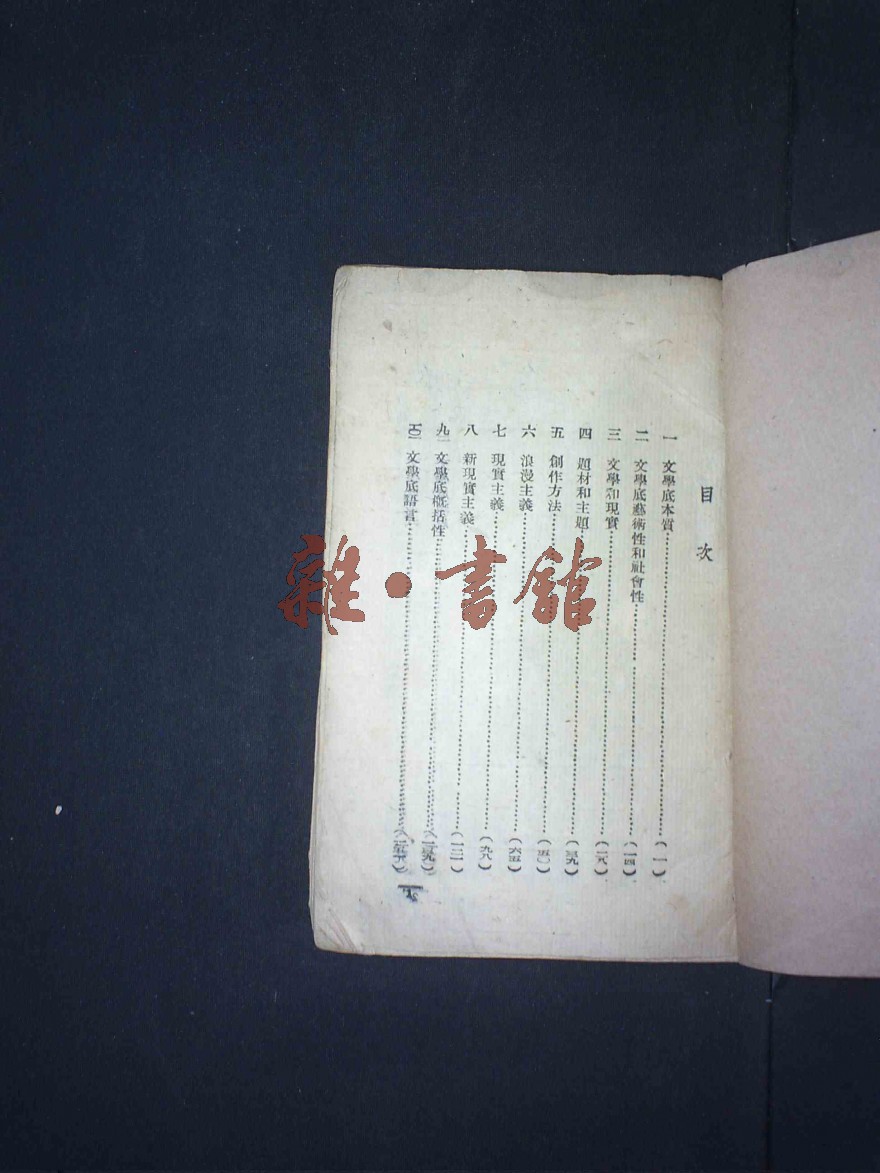 目次
一 文學底本質……(一)
二 文學底藝術性和社會性……(一四)
三 文學和現實……(二八)
四 題材和主題……(三九)
五 創作方法……(五〇)
六 浪漫主義……(六五)
七 現實主義……(九八)
八 新現實主義……(一二一)
九 文學底概括性……(一三九)
文學底語言
雜·書館